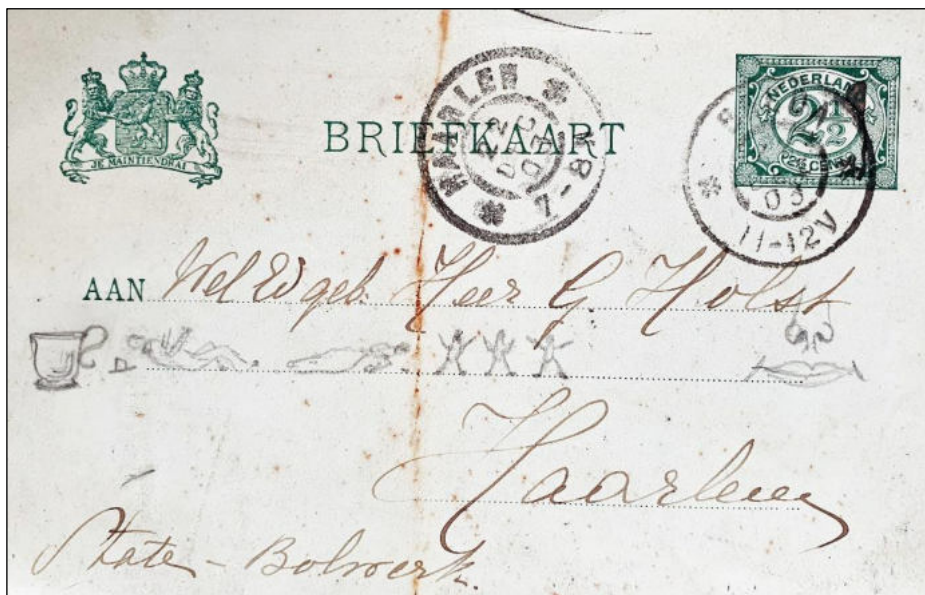 JE MAINTIENDRAI
BRIEFKAART
NEDERLAND
2½
HAARLEM
7-8
03
11-12V
AAN Wel Ed geb. Heer G Holst
Haarlem
State - Bolwerk.